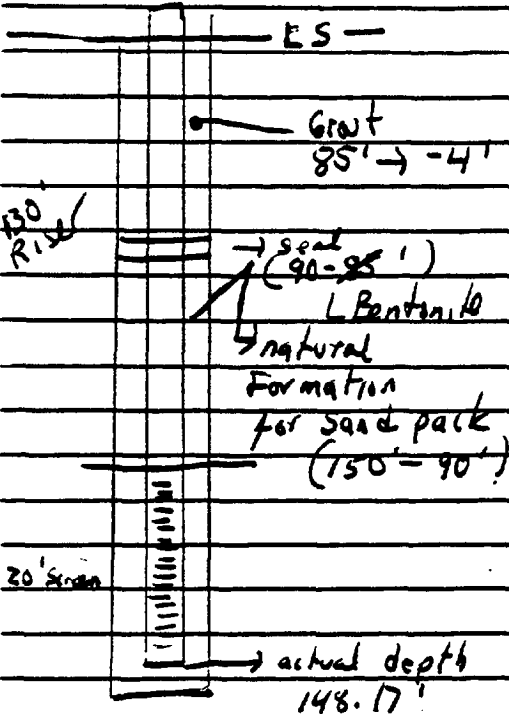 ES
Grout
85' → -4'
130'
Riser
→ seal
(90-85')
Bentonite
natural
Formation
for sand pack
(150'-90')
20' Screen
→ actual depth
148.17'